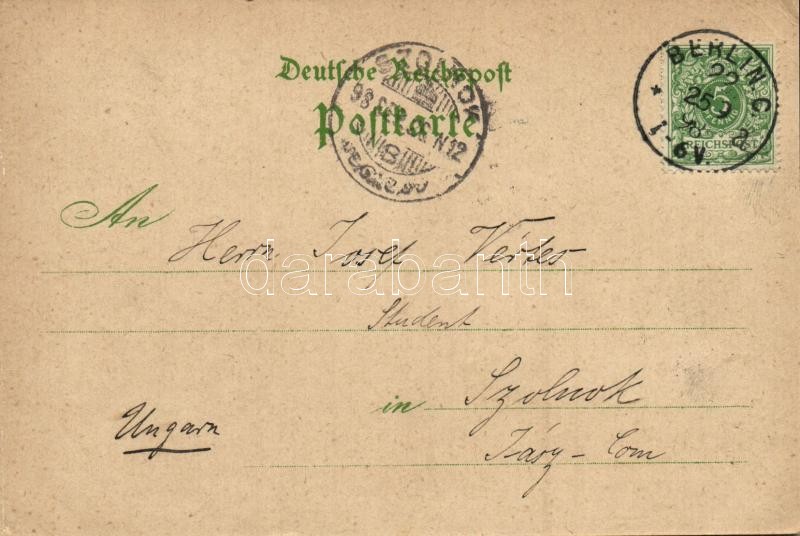 Deutsche Reichspost
Postkarte
SZOLNOK
98
N12
N8
BERLIN.C.
22
25 9
98
1-6V
5
PFENNIG
REICHSPOST
An Herrn Josef Vértes
darabanth
Student
in Szolnok
Ungarn
Jász-Com